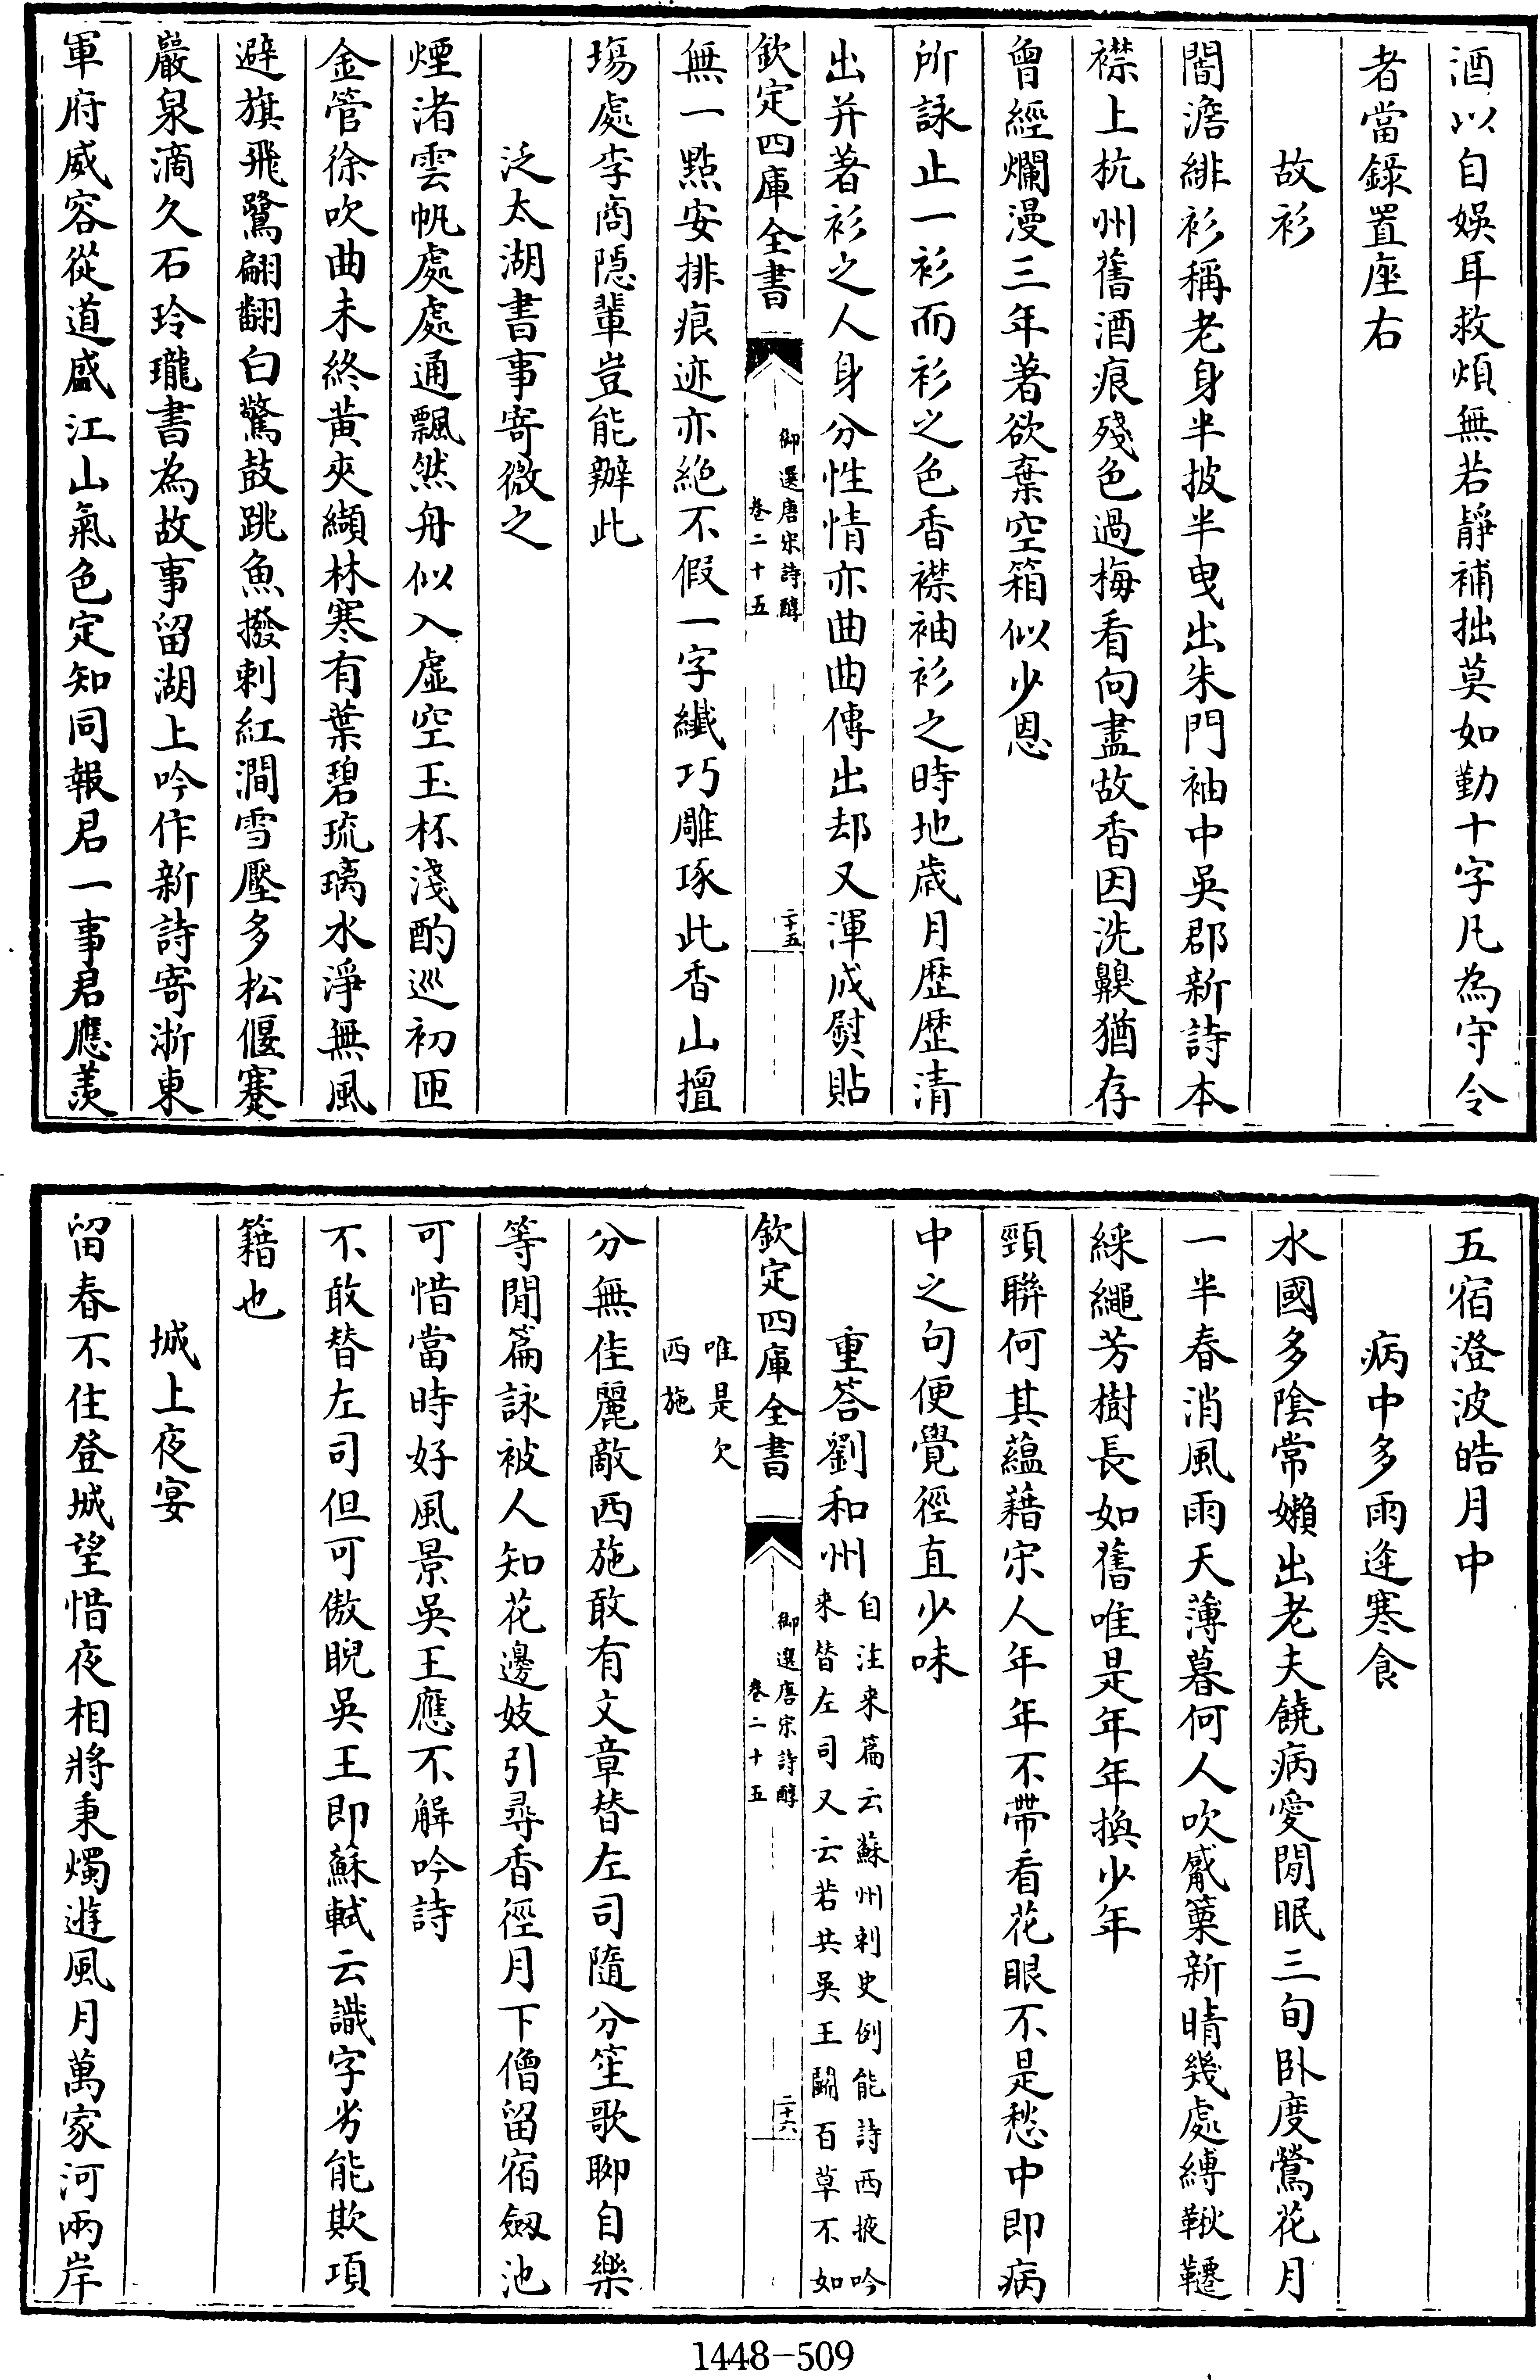 酒以自娛耳救煩無若靜補拙莫如勤十字凡為守令
者當錄置座右
故衫
闇澹緋衫稱老身半披半曳出朱門袖中吳郡新詩本
襟上杭州舊酒痕殘色過梅看向盡故香因洗齅猶存
曾經爛漫三年著欲棄空箱似少恩
所詠止一衫而衫之色香襟袖衫之時地歲月歷歷清
出并著衫之人身分性情亦曲曲傳出却又渾成熨貼
欽定四庫全書
御選唐宋詩醇
卷二十五
二十五
無一點安排痕迹亦絶不假一字纖巧雕琢此香山擅
場處李商隱輩豈能辦此
泛太湖書事寄微之
煙渚雲帆處處通飄然舟似入虛空玉杯淺酌巡初匝
金管徐吹曲未終黃夾纈林寒有葉碧琉璃水淨無風
避旗飛鷺翩翻白驚鼓跳魚撥剌紅澗雪壓多松偃蹇
巖泉滴久石玲瓏書為故事留湖上吟作新詩寄浙東
軍府威容從道盛江山氣色定知同報君一事君應羨
五宿澄波皓月中
病中多雨逢寒食
水國多陰常嬾出老夫饒病愛閒眠三旬卧度鶯花月
一半春消風雨天薄暮何人吹觱篥新晴幾處縛鞦韆
綵繩芳樹長如舊唯是年年換少年
頸聯何其蘊藉宋人年年不帶看花眼不是愁中即病
中之句便覺徑直少味
重答劉和州自注来篇云蘇州刺史例能詩西掖吟
来替左司又云若共吳王鬬百草不如
欽定四庫全書
御選唐宋詩醇
卷二十五
二十六
唯是欠
西施
分無佳麗敵西施敢有文章替左司隨分笙歌聊自樂
等閒篇詠被人知花邊妓引尋香徑月下僧留宿劔池
可惜當時好風景吳王應不解吟詩
不敢替左司但可傲睨吳王即蘇軾云識字劣能欺項
籍也
城上夜宴
留春不住登城望惜夜相將秉燭遊風月萬家河兩岸
1448-509